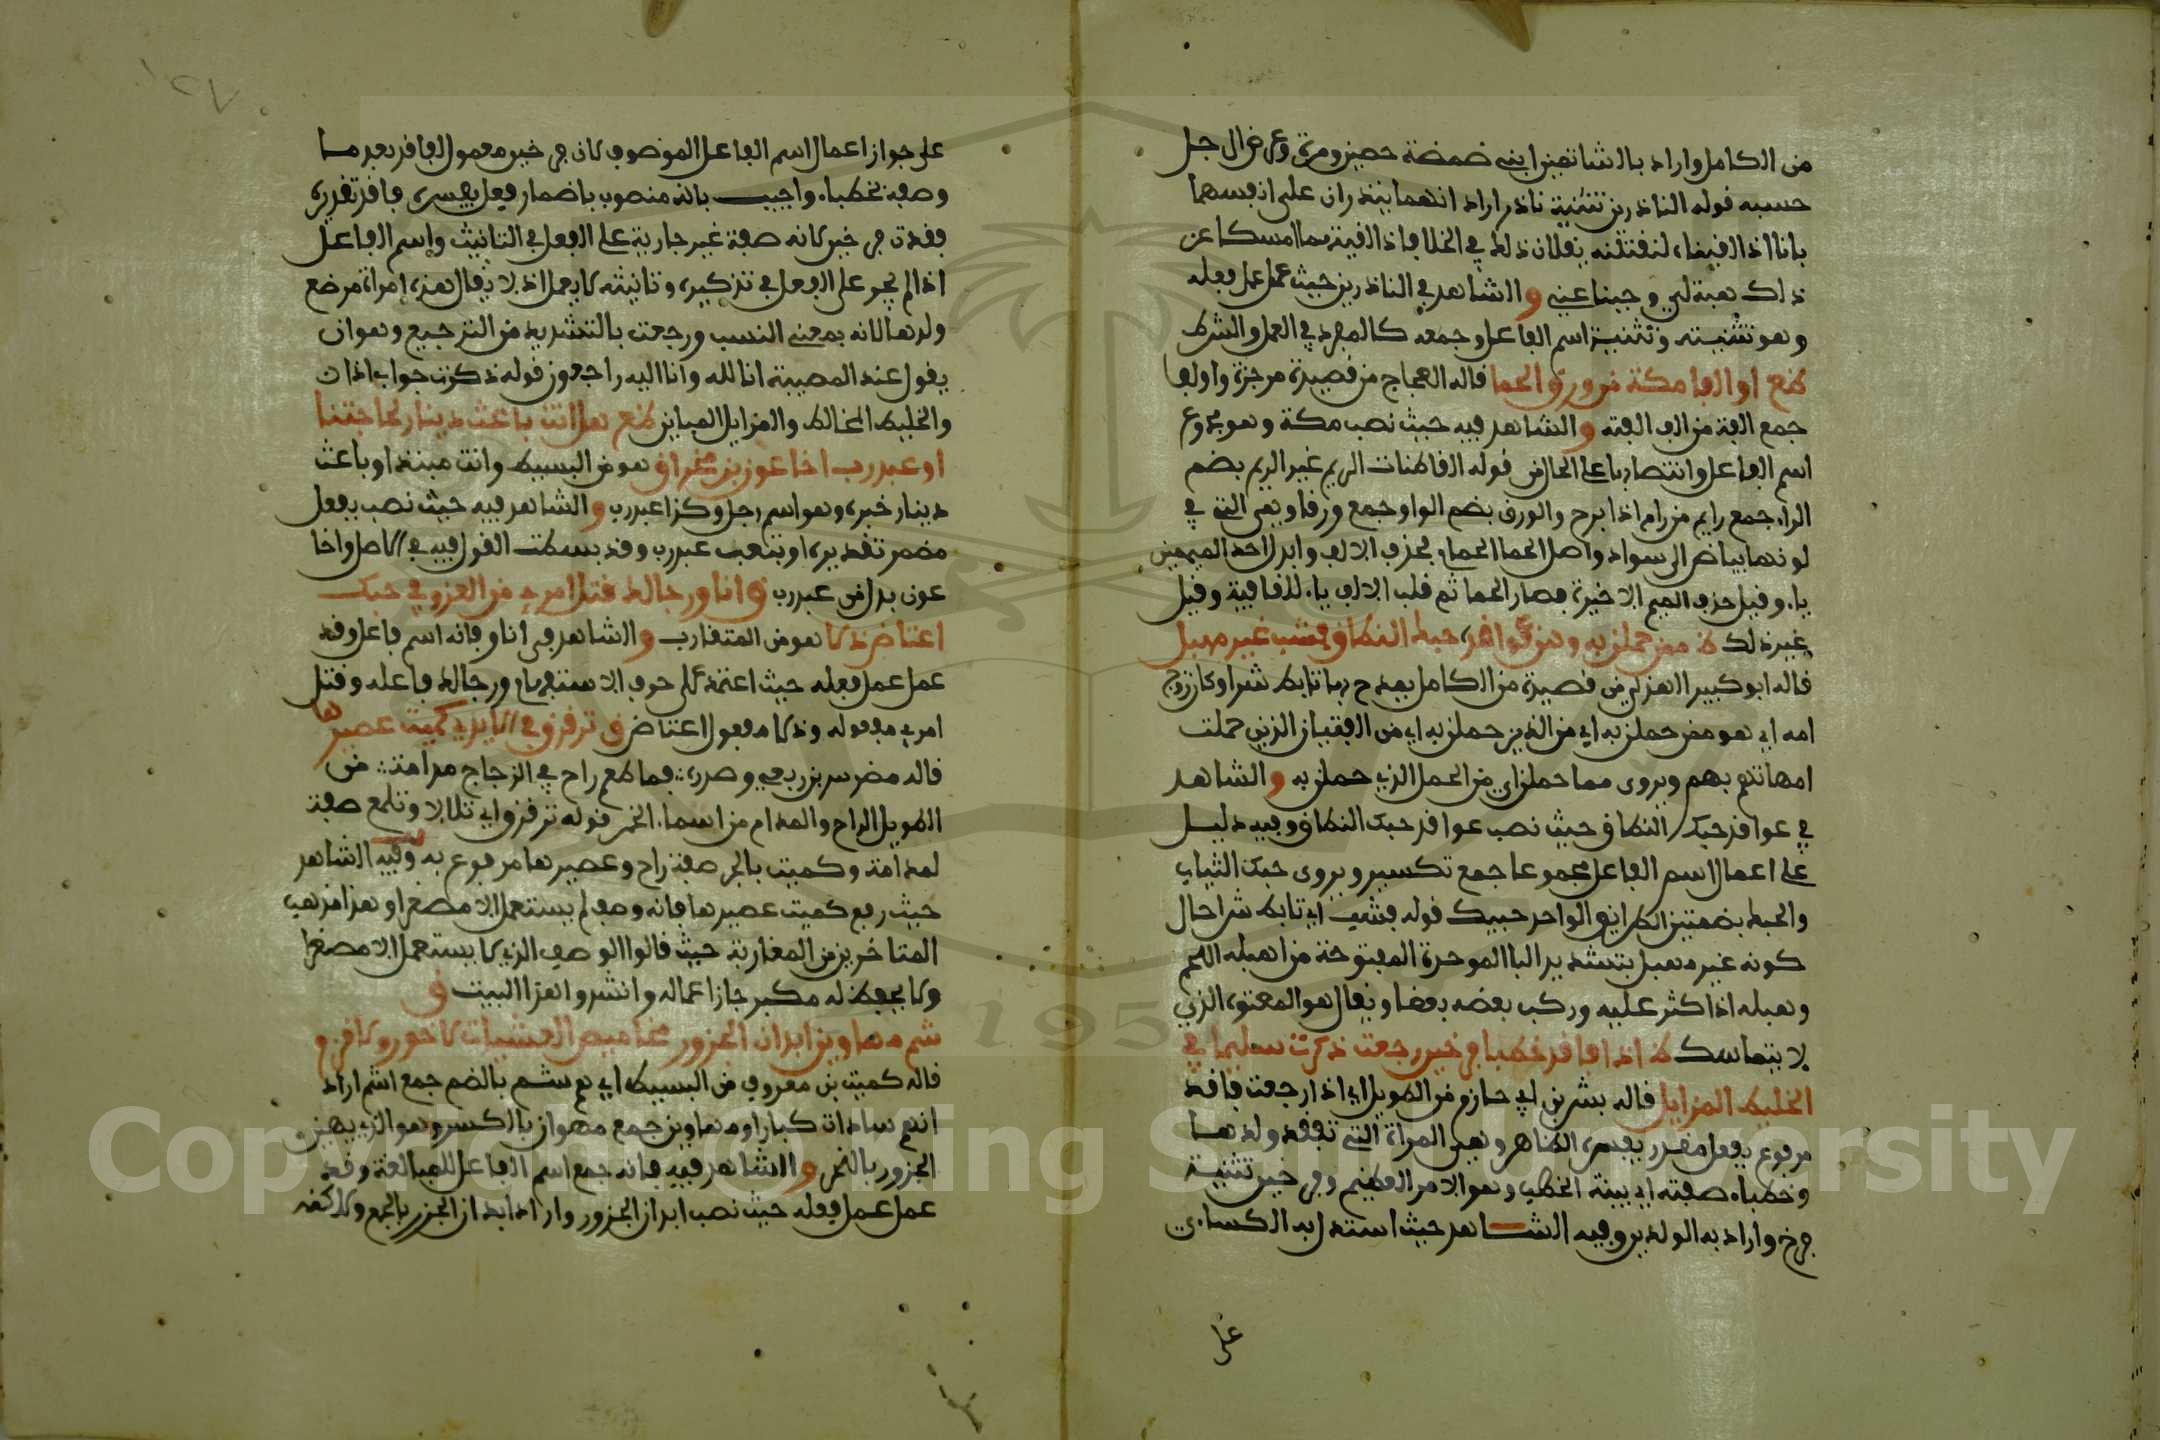 من الكامل واراد بالشاتمين ابني ضمضم حصين ومرة وعرض الرجل
حسبه قوله الناذرين تثنية ناذر اراد انهما ينذران على انفسهما
بانا اذا لقينا لنقتلنه يقلان ذلك في الخلا فاذا لقيتهما امسكا عن
ذلك هيبة لي وجبنا عني والشاهد في الناذرين حيث عمل عمل فعله
وهو تثنيته وتثنية اسم الفاعل وجمعه كالمفرد في العمل والشرط
ظفع اوالفا مكة من ورق الحما قاله العجاج من قصيدة مرجزة واولفا
جمع الفة من الف الفته والشاهد فيه حيث نصب مكة وهو مجموع
اسم الفاعل وانتصابها على الحال من قوله القاطنات الريم غير الريم بضم
الراء جمع رايم من رام اذا برح والورق بضم الواو جمع ورقا وهي التي في
لونها بياض الى سواد واصل الحما الحمام فحذف الالف وابدل احد الميمين
يا وقيل حذف الميم الاخيرة فصار الحما ثم قلب الالف يا للقافية وقيل
غير ذلك ظ ممن حملن به وهن عواقد حبك النطاق فشب غير مهبل
قاله ابو كبير الهذلي من قصيدة من الكامل يمدح بها تابط شرا وكان زوج
امه اي هو ممن حملن به اي من الذين حملن به اي من الفتيان الذين حملت
امهاتهم بهم ويروى مما حملن اي من الحمل الذي حملن به والشاهد
في عواقد حبك النطاق حيث نصب عواقد حبك النطاق وفيه دليل
على اعمال اسم الفاعل مجموعا جمع تكسير ويروى حبك الثياب
والحبك بضمتين الطرايق الواحد حبيك قوله فشب اي تابط شرا حال
كونه غير مهبل بتشديد البا الموحدة المفتوحة من اهبله اللحم
وهبله اذا كثر عليه وركب بعضه بعضا ويقال هو المعتوه الذي
لا يتماسك ظ اذا فاقد خطبا فرخين رجعت ذكرت سليما في
الخليط المزايل قاله بشر بن ابي حازم من الطويل اي اذا رجعت فاقد
مرفوع بفعل مقدر يفسره الظاهر وهي المراة التي تفقد ولدها
وخطبا صفته اي بينة الخطب وهو الامر العظيم وفرخين تثنية
فرخ واراد به الولدين وفيه الشاهد حيث استدل به الكسائي
على
على جواز اعمال اسم الفاعل الموصوف لان فرخين معمول لفاقد بعد ما
وصفه بخطبا واجيب بانه منصوب باضمار فعل يفسره فاقد تقديره
فقدت فرخين لانه صفة غير جارية على الفعل في التانيث واسم الفاعل
اذا لم يجر على الفعل في تذكيره وتانيثه لا يعمل اذ لا يقال هذه امراة مرضع
ولدها لانه بمعنى النسب ورجعت بالتشديد من الترجيع وهو ان
يقول عند المصيبة انا لله وانا اليه راجعون قوله ذكرت جواب اذا
والخليط المخالط والمزايل المباين ظفع هل انت باعث دينار لحاجتنا
او عبد رب اخا عون بن مخراق هو من البسيط وانت مبتدا وباعث
دينار خبره وهو اسم رجل وكذا عبد رب والشاهد فيه حيث نصب بفعل
مضمر تقديره او تبعث عبد رب وقد بسطت القول فيه في الاصل واخا
عون بدل من عبد رب ق اناو رجالك قتل امرء من العز في حبك
اعتاض ذلا هو من المتقارب والشاهد في اناو فانه اسم فاعل وقد
عمل عمل فعله حيث اعتمد على حرف الاستفهام ورجالك فاعله وقتل
امرء مفعوله وذلا مفعول اعتاض ق ترقرق في الايدي كميت عصيرها
قاله مضرس بن ربعي وصدره فما طعم راح في الزجاج مدامة من
الطويل الراح والمدام من اسماء الخمر قوله ترقرق اي تلالا وتلمع صفة
لمدامة وكميت بالجر صفة راح وعصيرها مرفوع به وفيه الشاهد
حيث رفع كميت عصيرها فانه وصف لم يستعمل الا مصغرا وهذا مذهب
المتاخرين من المغاربة حيث قالوا الوصف الذي لا يستعمل الا مصغرا
ولا يحفظ له مكبر جاز اعماله وانشدوا هذا البيت ق
شم مهاوين ابدان الجزور مخاميص العشيات لا خور ولا قزم
قاله كميت بن معروف من البسيط اي هم شم بالضم جمع اشم اراد
انهم سادات كبار او مهاوين جمع مهوان بالكسر وهو الذي يهين
الجزور بالنحر والشاهد فيه فانه جمع اسم الفاعل للمبالغة وقد
عمل عمل فعله حيث نصب ابدان الجزور واراد ابدان الجزر بالجمع ولاكنه
١٢٧
Copyright © King Saud University
195